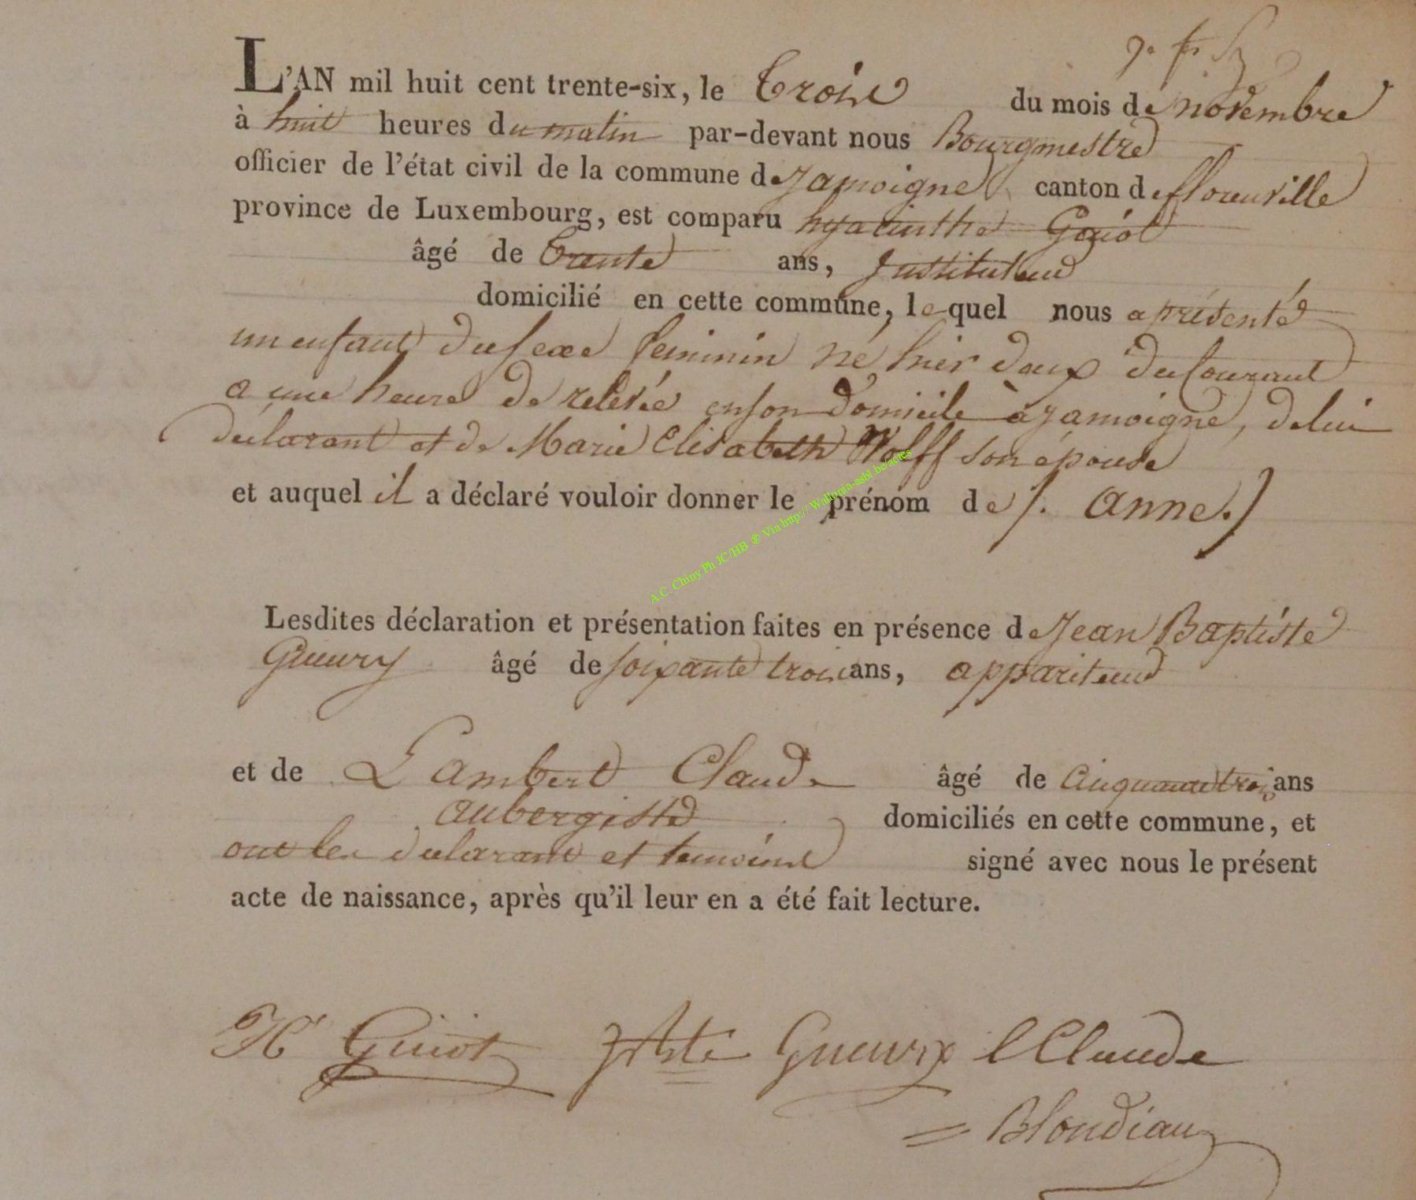 L'AN mil huit cent trente-six, le trois du mois de novembre
à huit heures du matin par-devant nous Bourgmestre
officier de l'état civil de la commune de Jamoigne canton de florenville
province de Luxembourg, est comparu hyacinthe Guiot
âgé de trente ans, Instituteur
domicilié en cette commune, lequel nous a présenté
un enfant du sexe feminin né hier deux du Courant
a une heure de relevée en son domicile à Jamoigne, de lui
déclarant et de Marie Elisabeth Wolff son épouse
et auquel il a déclaré vouloir donner le prénom de /. Anne./
A.C. Chiny Ph JC/HB & Via http://Wallonia-asbl.be/actes
Lesdites déclaration et présentation faites en présence de Jean Baptiste
Gueury âgé de soixante trois ans, appariteur
et de Lambert Claude âgé de Cinquante trois ans
aubergiste domiciliés en cette commune, et
ont les declarant et temoins signé avec nous le présent
acte de naissance, après qu'il leur en a été fait lecture.
H Guiot JBte Gueury L Claude
Blondiau